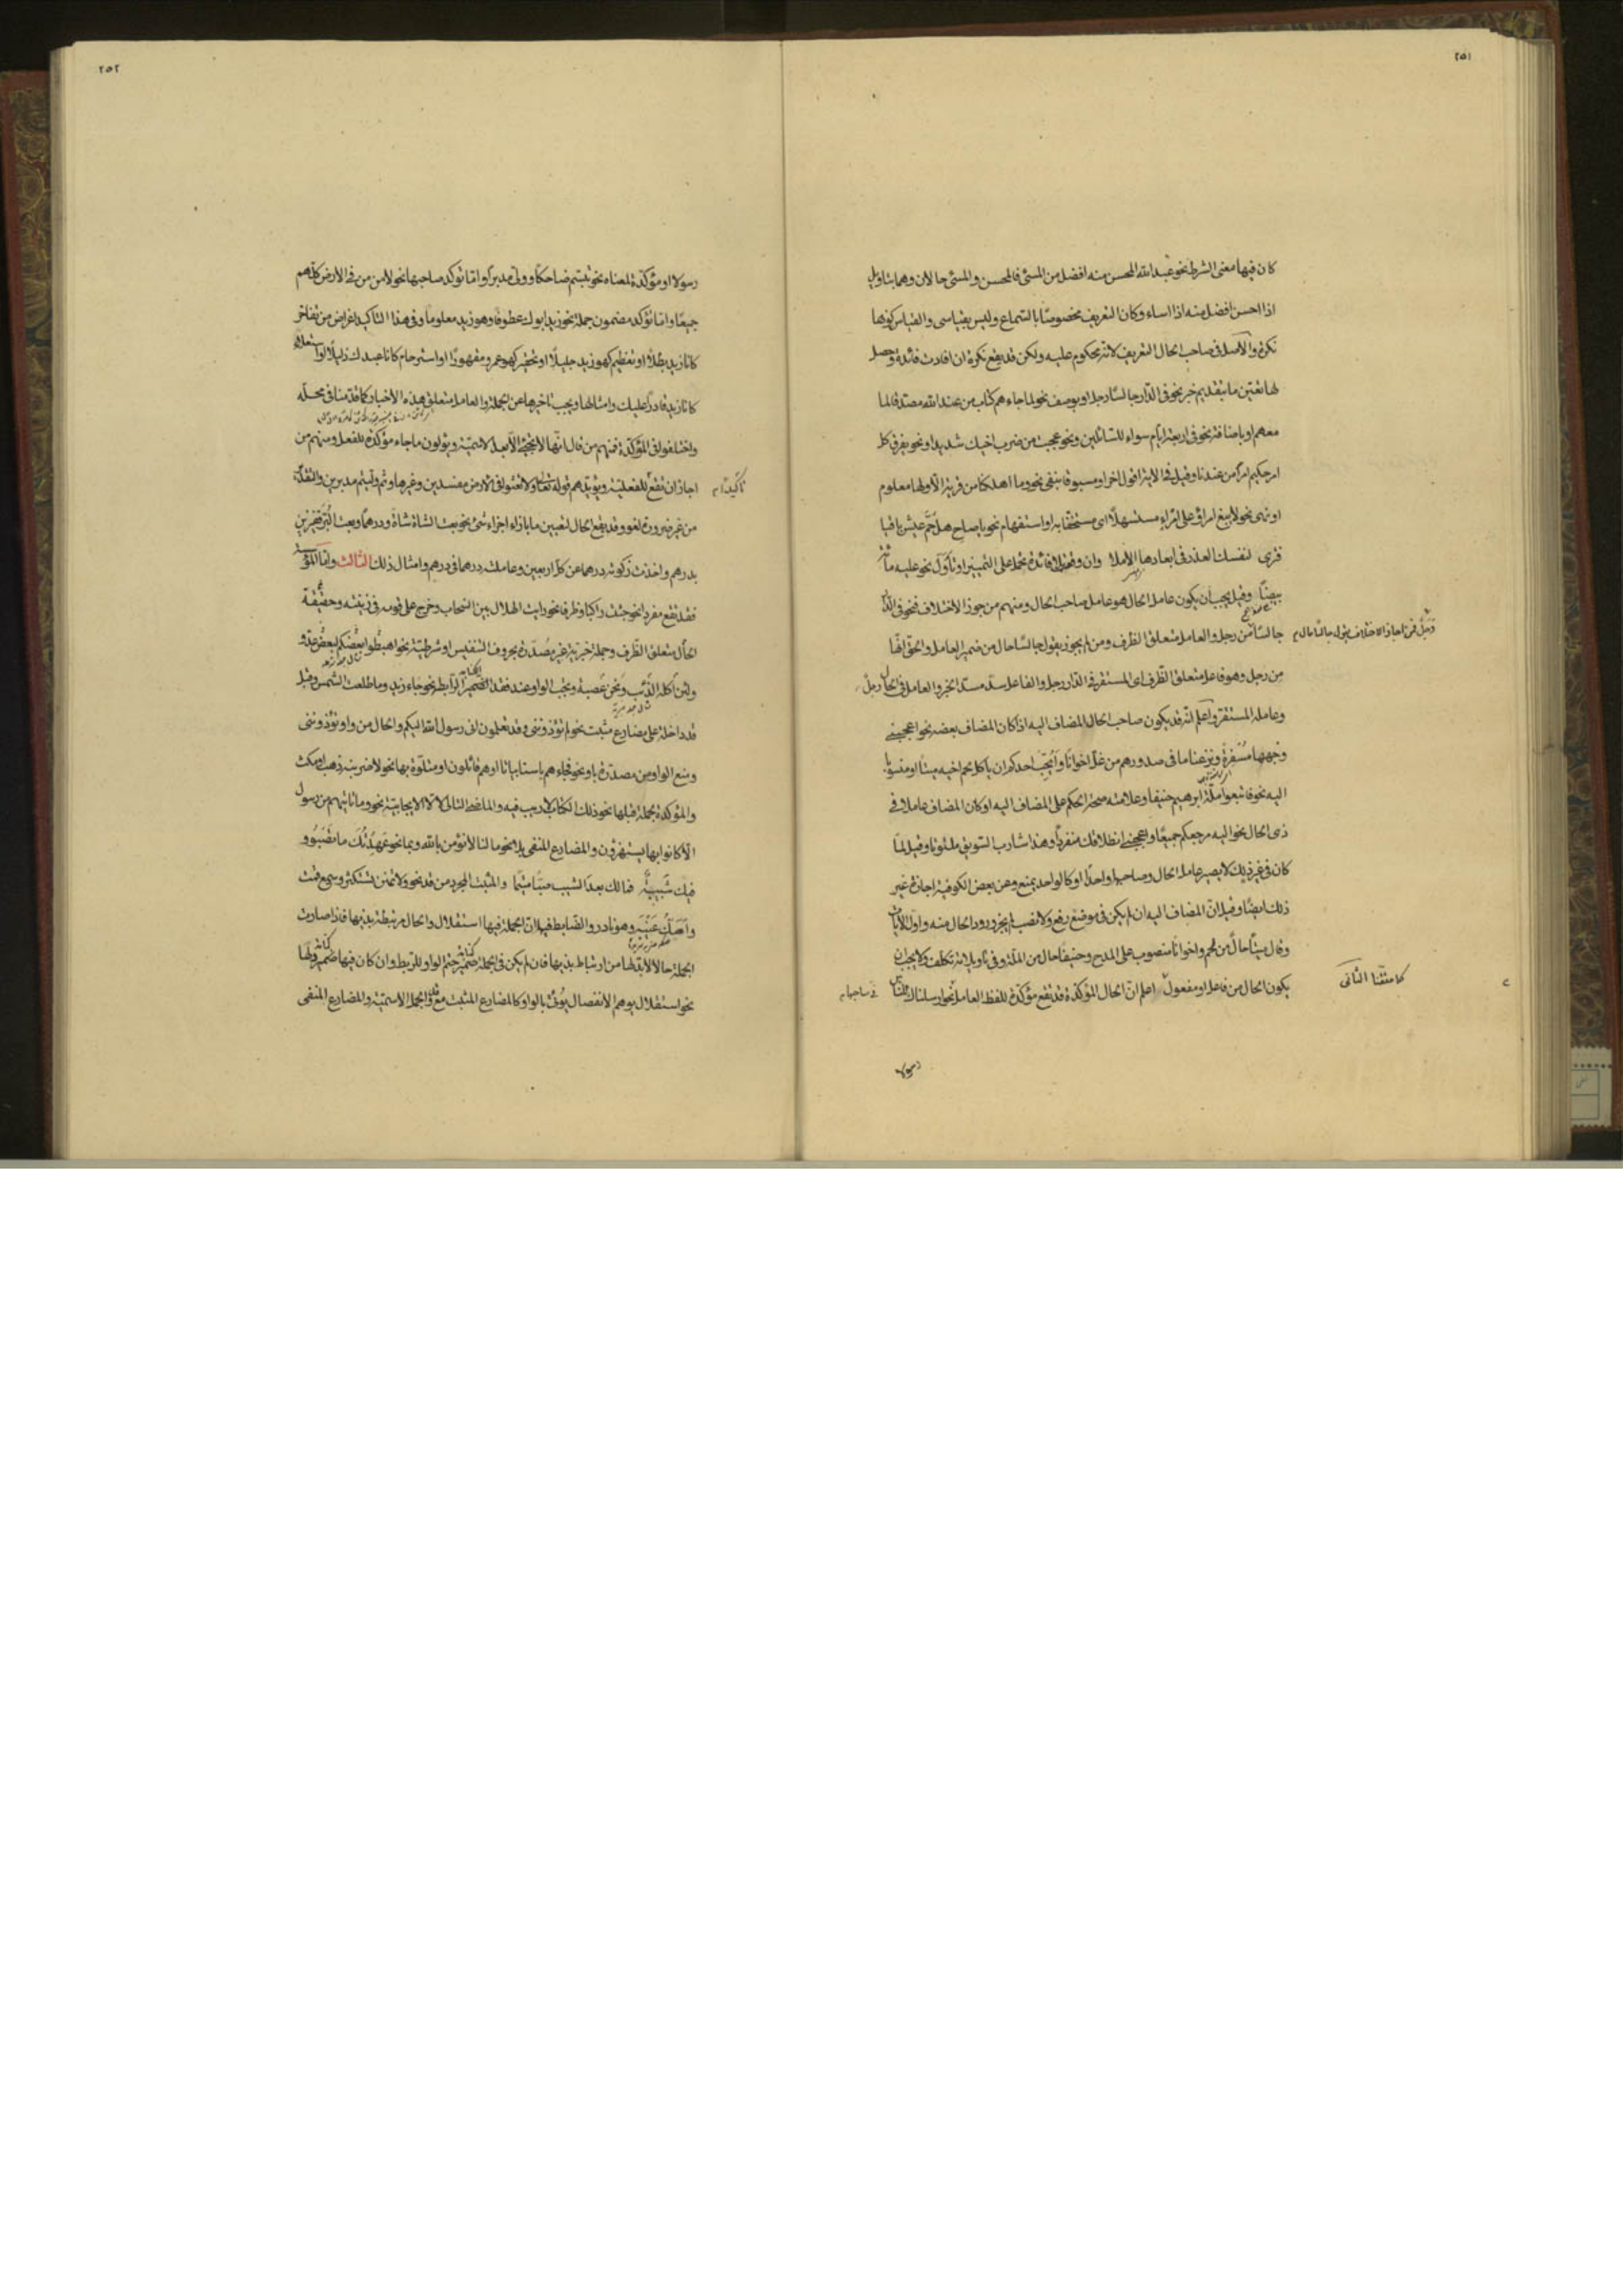 ٢٥١
كان فيها معنى الشرط نحو عبد الله المحسن منه افضل من المسئ فالمحسن والمسئ حالان وهما بتاويل
اذا احسن افضل منه اذا اساء وكان التعريف مخصوصا بالسماع وليس بقياسى والقياس كونها
نكرة والاصل فى صاحب الحال التعريف لانه محكوم عليه ولكن قد يقع نكرة ان افادت فائدة وحصل
لها تعين ما بتقديم خبر نحو فى الدار جالسا رجل او بوصف نحو لما جاءهم كتاب من عند الله مصدقا لما
معهم او باضافة نحو فى اربعة ايام سواء للسائلين ونحو عجبت من ضرب اخيك شديدا ونحو يفرق كل
امر حكيم امرا من عندنا وقيل او مسبوقا بنفى نحو وما اهلكنا من قرية الا ولها معلوم
او نهى نحو لا يبغ امرؤ على امرئ مستسهلا اى مستخفا به او استفهام نحو يا صاح هل حم عيش باقيا
فترى لنفسك العذر فى ابعادها الاملا وان وقع بلا فائدة يحمل على التمييز او تأول نحو عليه مائة
بيضا وقيل يجب ان يكون عامل الحال هو عامل صاحب الحال ومنهم من جوز الاختلاف فنحو فى الدار
جالسا من رجل والعامل متعلق الظرف ومن لم يجوز يقول جالسا حال من ضمير العامل والحق انها
من رجل وهو فاعل متعلق الظرف اى المستقر فى الدار رجل والفاعل سد مسد الخبر والعامل فى الحال رجل
وعامله المستقر واعلم انه قد يكون صاحب الحال المضاف اليه اذ كان المضاف بعضه نحو اعجبنى
وجهها مسفرة ونزعنا ما فى صدورهم من غل اخوانا وايحب احدكم ان ياكل لحم اخيه ميتا او منسوبا
اليه نحو فاتبعوا ملة ابرهيم حنيفا وعلامته صحة الحكم على المضاف اليه او كان المضاف عاملا فى
ذى الحال نحو اليه مرجعكم جميعا واعجبنى انطلاقك منفردا وهذا شارب السويق ملتوتا وقيل لما
كان فى غير ذلك لا يصير عامل الحال وصاحبها واحدا او كالواحد يمنع وعن بعض الكوفية اجازة غير
ذلك ايضا وقيل ان المضاف اليه ان لم يكن فى موضع رفع ولا نصب لم يجز ورود الحال منه واول الايات
وقال ميتا حال من لحم واخوانا منصوب على المدح وحنيفا حال من الملة وفى تاويلاته تكلف ولا يجب ان
يكون الحال من فاعل او مفعول اعلم ان الحال المؤكدة قد يقع مؤكدة للفظ العامل نحو ارسلناك للناس
كما مثلنا الثانى
رسولا
٢٥٢
رسولا او مؤكدة لمعناه نحو تبسم ضاحكا وولى مدبرا واما تؤكد صاحبها نحو لامن من فى الارض كلهم
جميعا واما تؤكد مضمون جملة نحو زيد ابوك عطوفا وهو زيد معلوما وفى هذا التاكيد اغراض من تفاخر
كانا زيد بطلا او تعظيم كهو زيد جليلا او تحقير كهو عمرو مقهورا او استرحام كانا عبدك ذليلا او استعلاء
كانا زيد قادرا عليك وامثالها ويجب تاخيرها عن الجملة والعامل متعلق هذه الاخبار كما قدمنا فى محله
واختلفوا فى المؤكدة فمنهم من قال انها لا تجئ الا بعد الاسمية ويؤولون ما جاء مؤكدة للفعل ومنهم من
اجاز ان تقع للفعلية ويؤيدهم قوله تعالى ولا تعثوا فى الارض مفسدين وغيرها وثم وليتم مدبرين والتقدير
تاكيدا
من غير ضرورة لغو وقد يقع الحال لتعيين ما بازاء اجزاء شئ نحو بعت الشاة شاة ودرهما وبعت البر قفيزين
بدرهم واخذت زكوته درهما عن كل اربعين وعاملك درهما فى درهم وامثال ذلك الثالث واما المؤسسة
فقد تقع مفردا نحو جئت راكبا وظرفا نحو رايت الهلال بين السحاب وخرج على قومه فى زينته وحقيقة
الحال متعلق الظرف وجملة خبرية غير مصدرة بحروف التنفيس او شرطية نحو اهبطوا بعضكم لبعض عدو
ولئن اكله الذئب ونحن عصبة ويجب الواو عند فقد الضمير الرابط نحو جاء زيد وما طلعت الشمس وقبل
قد داخلة على مضارع مثبت نحو لم تؤذوننى وقد تعلمون انى رسول الله اليكم والحال من واو تؤذوننى
ويمنع الواو من مصدرة باو نحو فجاءهم باسنا بياتا او هم قائلون او متلوة بها نحو لاضربنه ذهب او مكث
والمؤكدة بجملة قبلها نحو ذلك الكتاب لا ريب فيه والماضى التالى لالا الايجابية نحو وما ياتيهم من رسول
الا كانوا به يستهزؤن والمضارع المنفى بلا نحو ما لنا لا نؤمن بالله وبما نحو عهدتك ما تصبو و
فيك شبيبة فما لك بعد الشيب صبا متيما والمثبت المجرد من قد نحو ولا تمنن تستكثر وسمع قمت
واصك عينيه وهو نادر والضابط قيل ان الجملة فيها استقلال والحال مرتبطة بذيها فاذا صارت
الجملة حالا لابد لها من ارتباط بذيها فان لم يكن فى الجملة ضمير حتم الواو للربط وان كان فيها ضمير ولها
نحو استقلال يوهم الانفصال يؤتى بالواو كالمضارع المثبت مع قد والجملة الاسمية والمضارع المنفى